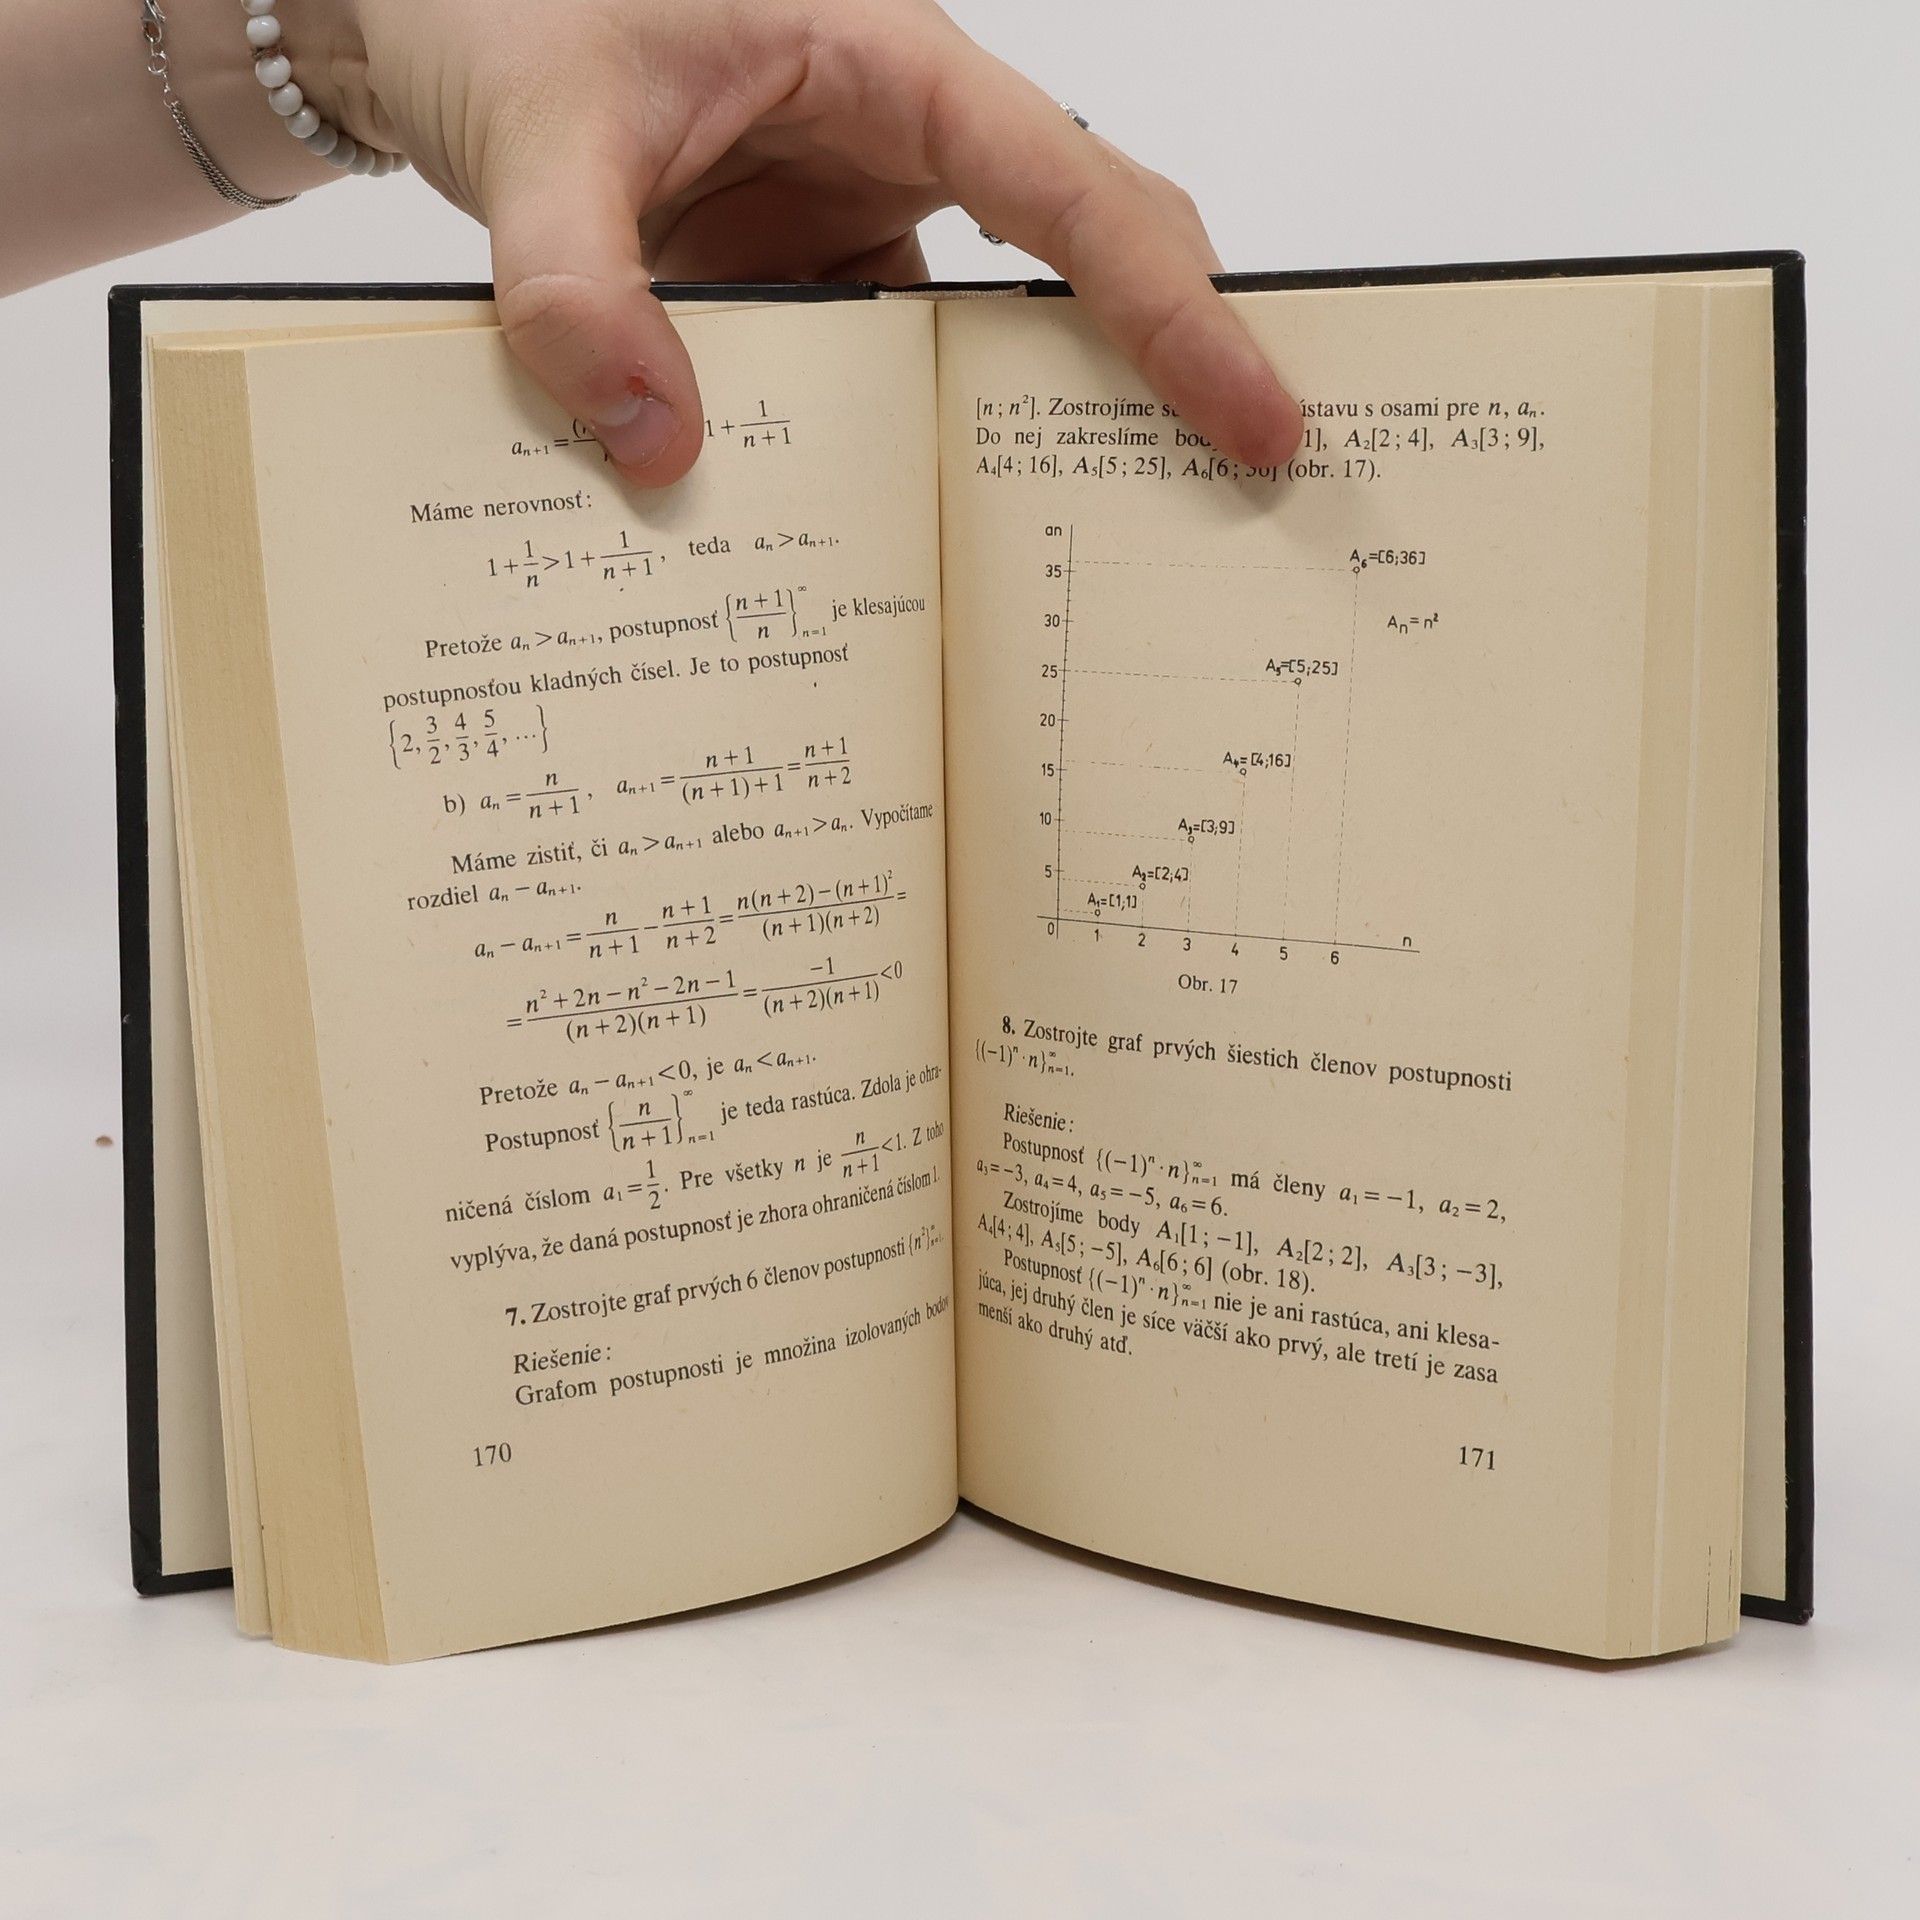 aₙ₊₁ = 1 + 1/(n + 1)
Máme nerovnosť:
1 + 1/n > 1 + 1/(n + 1), teda aₙ > aₙ₊₁.
Pretože aₙ > aₙ₊₁, postupnosť {(n + 1)/n}ₙ₌₁^∞ je klesajúcou
postupnosťou kladných čísel. Je to postupnosť
{2, 3/2, 4/3, 5/4, ...}
b) aₙ = n/(n + 1), aₙ₊₁ = (n + 1)/((n + 1) + 1) = (n + 1)/(n + 2)
Máme zistiť, či aₙ > aₙ₊₁ alebo aₙ₊₁ > aₙ. Vypočítame
rozdiel aₙ − aₙ₊₁.
aₙ − aₙ₊₁ = n/(n + 1) − (n + 1)/(n + 2) = (n(n + 2) − (n + 1)²)/((n + 1)(n + 2)) =
= (n² + 2n − n² − 2n − 1)/((n + 2)(n + 1)) = −1/((n + 2)(n + 1)) < 0
Pretože aₙ − aₙ₊₁ < 0, je aₙ < aₙ₊₁.
Postupnosť {n/(n + 1)}ₙ₌₁^∞ je teda rastúca. Zdola je ohra-
ničená číslom a₁ = 1/2. Pre všetky n je n/(n + 1) < 1. Z toho
vyplýva, že daná postupnosť je zhora ohraničená číslom 1.
7. Zostrojte graf prvých 6 členov postupnosti {n²}ₙ₌₁^∞.
Riešenie:
Grafom postupnosti je množina izolovaných bodov
170
[n; n²]. Zostrojíme s osami pre n, aₙ.
Do nej zakreslíme 1], A₂[2; 4], A₃[3; 9],
A₄[4; 16], A₅[5; 25], A₆[6; 36] (obr. 17).
an
A₆=[6;36]
35
30
Aₙ = n²
25
A₅=[5;25]
20
15
A₄=[4;16]
10
A₃=[3;9]
5
A₂=[2;4]
A₁=[1;1]
0 1 2 3 4 5 6 n
Obr. 17
8. Zostrojte graf prvých šiestich členov postupnosti
{(−1)ⁿ · n}ₙ₌₁^∞.
Riešenie:
Postupnosť {(−1)ⁿ · n}ₙ₌₁^∞ má členy a₁ = −1, a₂ = 2,
a₃ = −3, a₄ = 4, a₅ = −5, a₆ = 6.
Zostrojíme body A₁[1; −1], A₂[2; 2], A₃[3; −3],
A₄[4; 4], A₅[5; −5], A₆[6; 6] (obr. 18).
Postupnosť {(−1)ⁿ · n}ₙ₌₁^∞ nie je ani rastúca, ani klesa-
júca, jej druhý člen je síce väčší ako prvý, ale tretí je zasa
menší ako druhý atď.
171